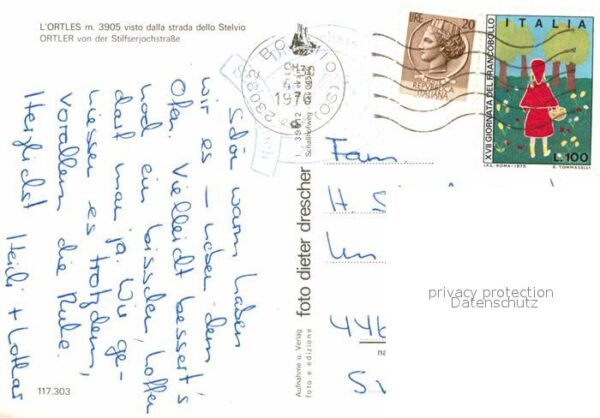 L'ORTLES m. 3905 visto dalla strada dello Stelvio
ORTLER von der Stilfserjochstraße
Schön warm haben
wir es – neben dem
Ofen. Vielleicht bessert's
noch ein bisschen, hoffen
darf man ja. Wir ge-
niessen es trotzdem,
vorallem die Ruhe.
Herzlichst Heidi + Lothar
117.303
foto dieter drescher
Aufnahme u. Verlag
foto e edizione
23032 BORMIO (SO)
1976
LIRE 20
REPVBBLICA
ITALIANA
ITALIA
XVII GIORNATA DEL FRANCOBOLLO
L.100
I.P.S.-ROMA-1975
E. TOMMASELLI
Fam.
H. S
446
privacy protection
Datenschutz